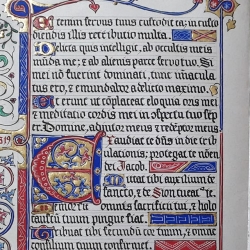 Etenim servus tuus custodit ea: in custo
diendis illis retributio multa.
Delicta quis intelligit, ab occultis meis
munda me: & ab alienis parce servo tuo. Si
mei nō fuerint dominati, tunc īmacula
tus ero, et emundabor a delicto maximo.
Et erunt ut cōplaceat eloquia oris mei
et meditatio cordis mei in cōspectu tuo sem
per. Domine, adjutor meus, et redēptor meus
Exaudiat te dn̄s in die tri
bulationis; protegat te nomē
dei Jacob.
Mittat tibi auxilium de
sancto, et de Sion tueatur te.
Memor sit omnis sacrificii tui, et holo
caustū tuum pingue fiat.
Tribuat tibi secundū cor tuum, et omne
consilium tuum confirmet.